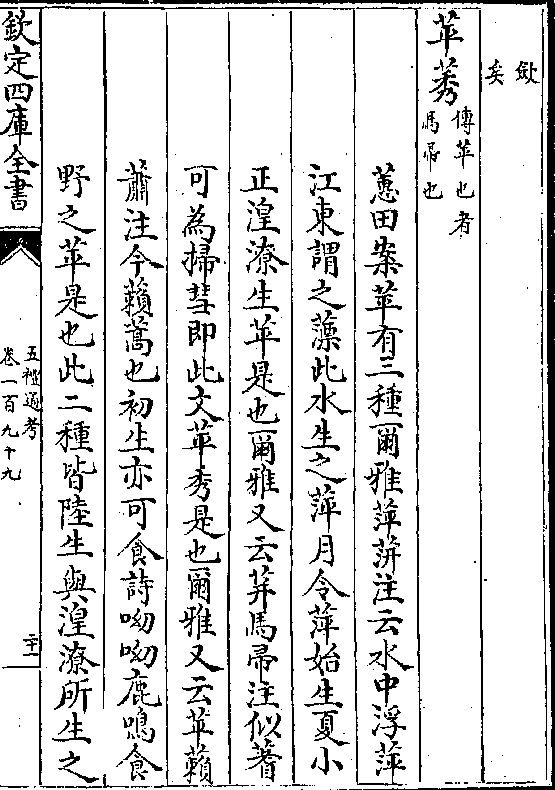 歟
矣
苹莠
傳苹也者
馬帚也
蕙田案苹有三種爾雅萍蓱注云水中浮萍
江東謂之薸此水生之萍月令萍始生夏小
正湟潦生苹是也爾雅又云荓馬帚注似蓍
可為掃彗即此文苹秀是也爾雅又云苹藾
蕭注今藾蒿也初生亦可食詩呦呦鹿鳴食
野之苹是也此二種皆陸生與湟潦所生之
欽定四庫全書
五禮通考
卷一百九十九
二十一